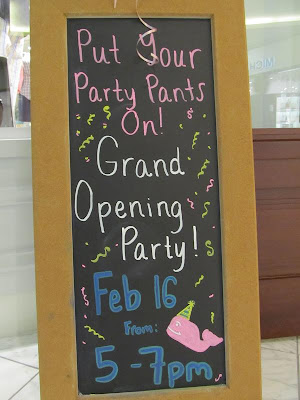 Put Your
Party Pants
On!
Grand
Opening
Party!
Feb 16
From:
5-7pm